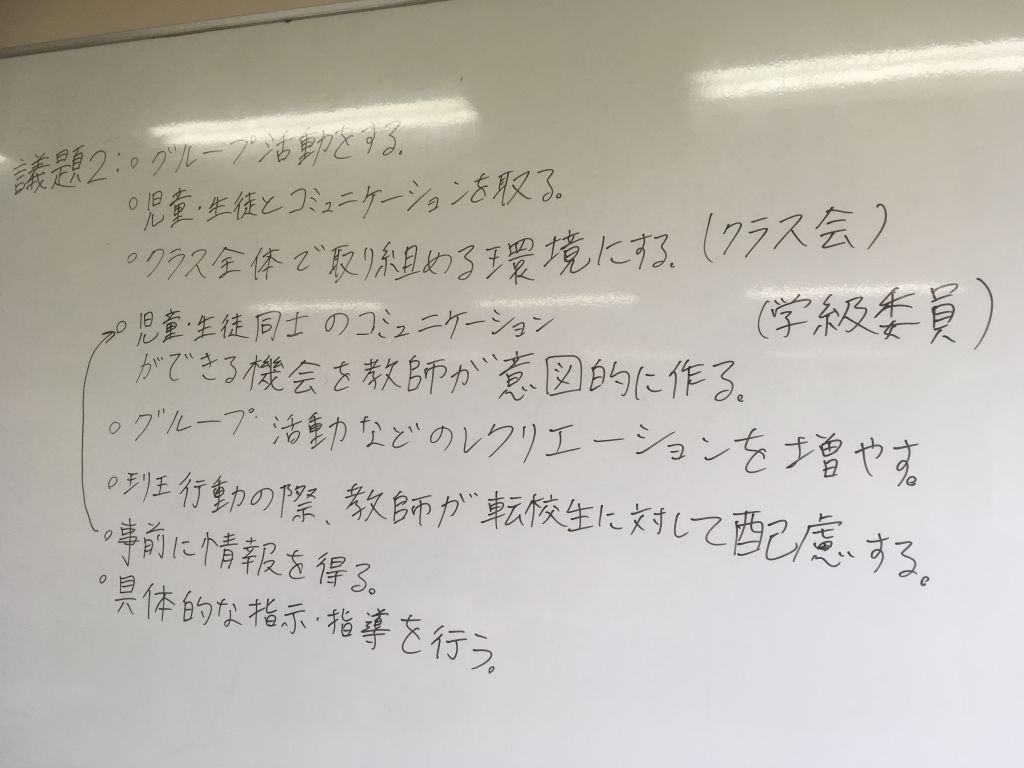 議題2:○グループ活動をする。
○児童・生徒とコミュニケーションを取る。
○クラス全体で取り組める環境にする。(クラス会)
(学級委員)
○児童・生徒同士のコミュニケーション
ができる機会を教師が意図的に作る。
○グループ活動などのレクリエーションを増やす。
○班行動の際、教師が転校生に対して配慮する。
○事前に情報を得る。
○具体的な指示・指導を行う。